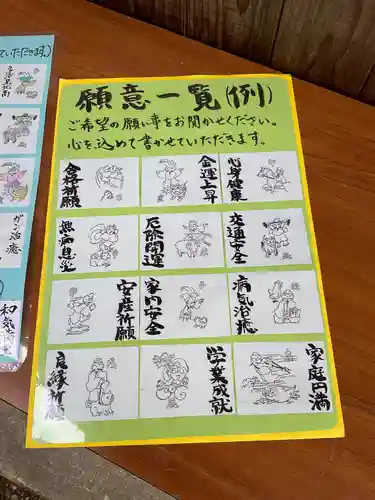 願意一覧(例)
ご希望の願い事をお聞かせください。
心を込めて書かせていただきます。
合格祈願
金運上昇
心身健康
無病息災
厄除開運
交通安全
安産祈願
家内安全
病気治癒
良縁祈願
学業成就
家庭円満
ていただきます。)
ガン治癒